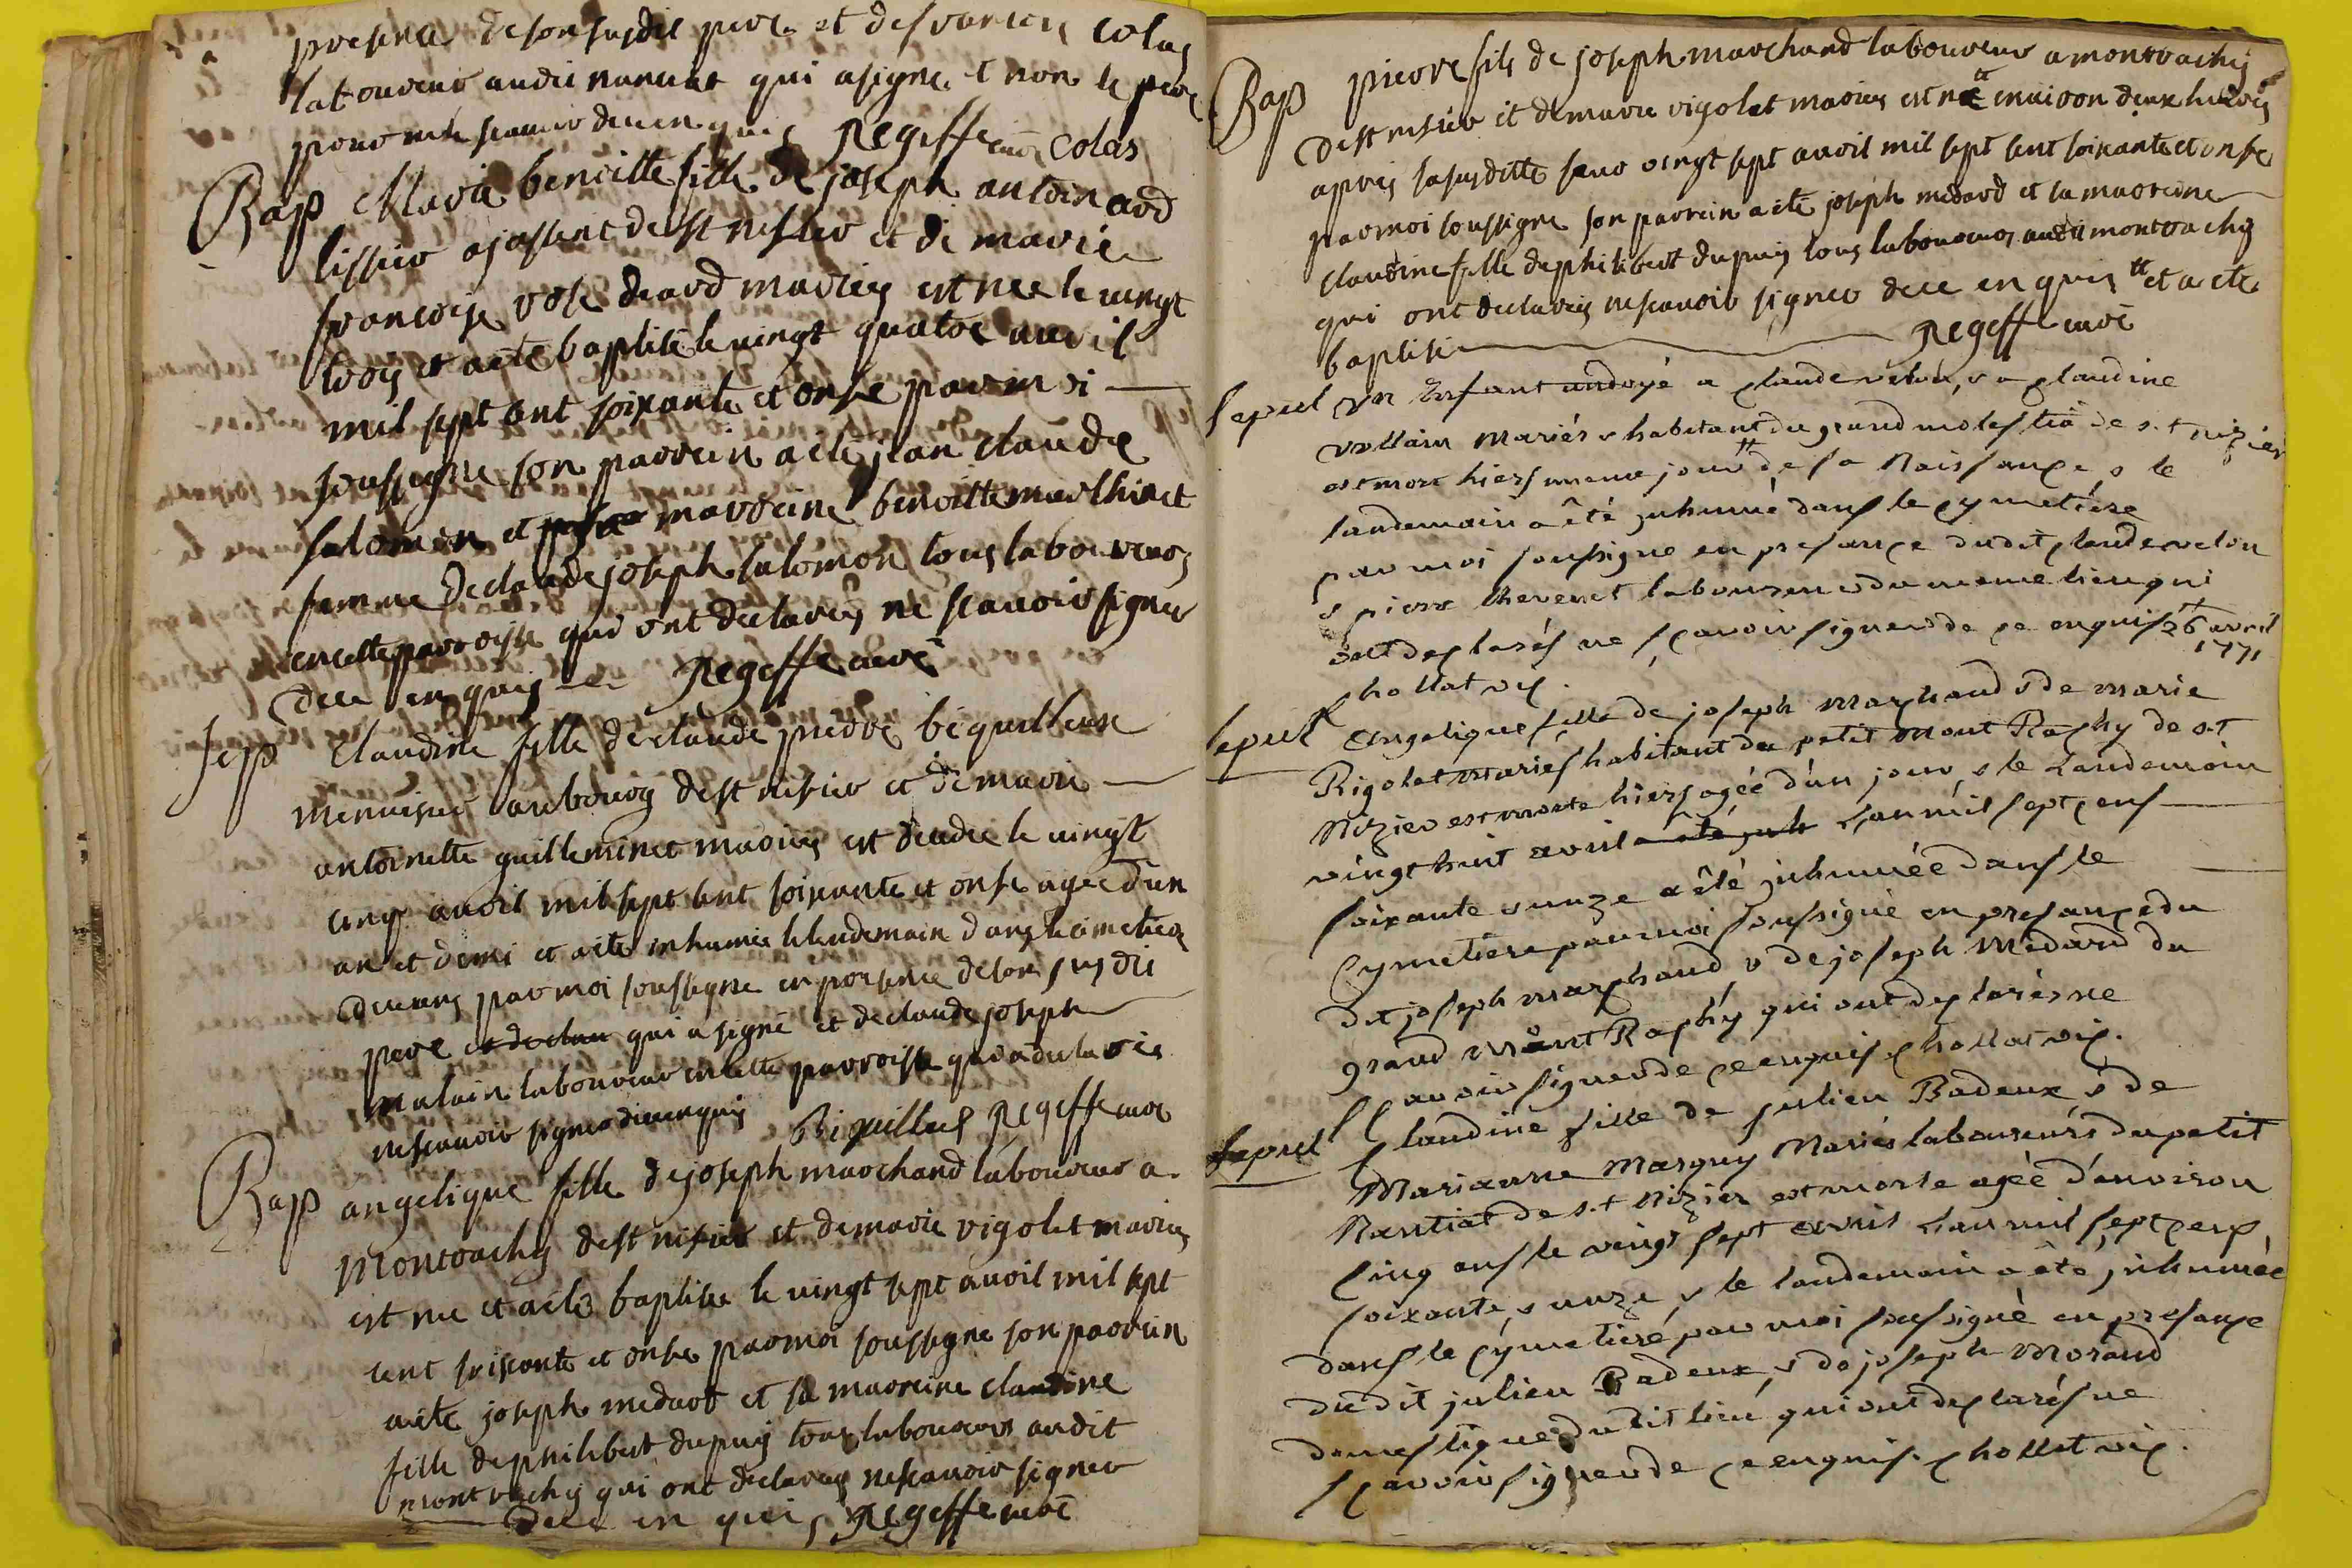 presence de son susdit pere et de francois colas
laboureur audit nanuat qui a signe et non le pere
pour ne le scauoir de ce enquis Regeffe curé Colas
Bap Maria benoitte fille de joseph antoin ard
tissier a jossent de st nesier et de marie
francoise rose drard mariés est nee le vingt
trois et a eté baptisé le vingt quatre auril
mil sept cent soixante et onse par moi
soussigne son parrein a eté jean claude
salomon et marreine benoitte marthinet
femme de claude joseph salomon tous laboureurs
en cette parroisse qui ont declarés ne scauoir signer
de ce enquis Regeffe curé
Sep Claudine fille de claude pierre bequilleux
menuisier au bourg de st nisier et de marie
antoinette guilleminet mariés est decedee le vingt
cinq auril mil sept cent soixante et onse agee d'un
an et demi et a eté inhumée le lendemain dans le cimetiere
de ceans par moi soussigne en presence de son susdit
pere et de clau qui a signé et de claude joseph
malain laboureur en cette parroisse qui a declaré
ne scauoir signer de ce enquis Biquilleux Regeffe curé
Bap angelique fille de joseph marchand laboureur a
Montrachy de st nisier et de marie rigolet mariés
est nee et a eté baptisée le vingt sept auril mil sept
cent soixante et onse par moi soussigne son parrein
a eté joseph medard et sa marreine claudine
fille de philibert dupuis tous laboureurs audit
montrachy qui ont declarés ne scauoir signer
de ce enquis Regeffe curé
Bap pierre fils de joseph marchand laboureur a montrachy
de st nisier et de marie rigolet mariés est né # enuiron deux heures
apres sa susditte seur vingt sept auril mil sept cent soixante et onse
par moi soussigne son parrein a eté joseph medard et sa marreine
claudine fille de philibert dupuis tous laboureurs audit montrachy
qui ont declarés ne scauoir signer de ce enquis # et a eté
baptisé Regeffe curé
sepul un Enfant andoyé a claude velon, & a claudine
vullain mariés & habitant du grand molestia de s.t nizier
est mort hier # meme jour de sa Naissance, & le
landemain a êté inhumé dans le cymetiére
par moi soussigné en presance dudit claude velon
& pierre thevenet laboureur du meme lieu qui
ont declarés ne sçavoir signer de ce enquis # 26 avril
chollat vic. 1771
sepul Angelique fille de joseph Marchand & de marie
Rigolet mariés habitant du petit Mont Rachy de s.t
Nizier est morte hier agéé d'un jour, & le Landemain
vingt huit avril a été inh L'an mil sept cens
soixante & unze a êté inhumée dans le
Cymetiére par moi soussigné en presance du
dit joseph marchand, & de joseph Medard du
grand Mont Rachy qui ont declarés ne
sçavoir signer de ce enquis chollat vic.
sepul Claudine fille de julien Badeux & de
Marianne Marguy Mariés laboureurs du petit
Nantiat de s.t Nizier est morte agéé d'environ
Cinq ans le vingt sept avril L'an mil sept cens
soixante, & unze & le landemain a êté inhumée
dans le Cymetiéré par moi soussigné en presance
du dit julien Badeux, & de joseph Morand
domestique du dit lieu qui ont declarés ne
sçavoir signer de ce enquis. chollat vic.